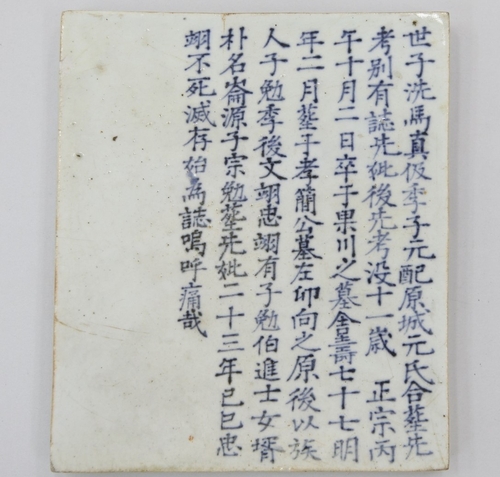 世子洗馬真伋季子元配原城元氏合塟先
考别有誌先妣後先考没十一歲 正宗丙
午十月二日卒于果川之墓舍壽七十七明
年二月塟于孝簡公墓左卯向之原後以族
人子勉季後文翊忠翊有子勉伯進士女壻
朴名崙源子宗勉塟先妣二十三年已巳忠
翊不死滅存始為誌嗚呼痛哉